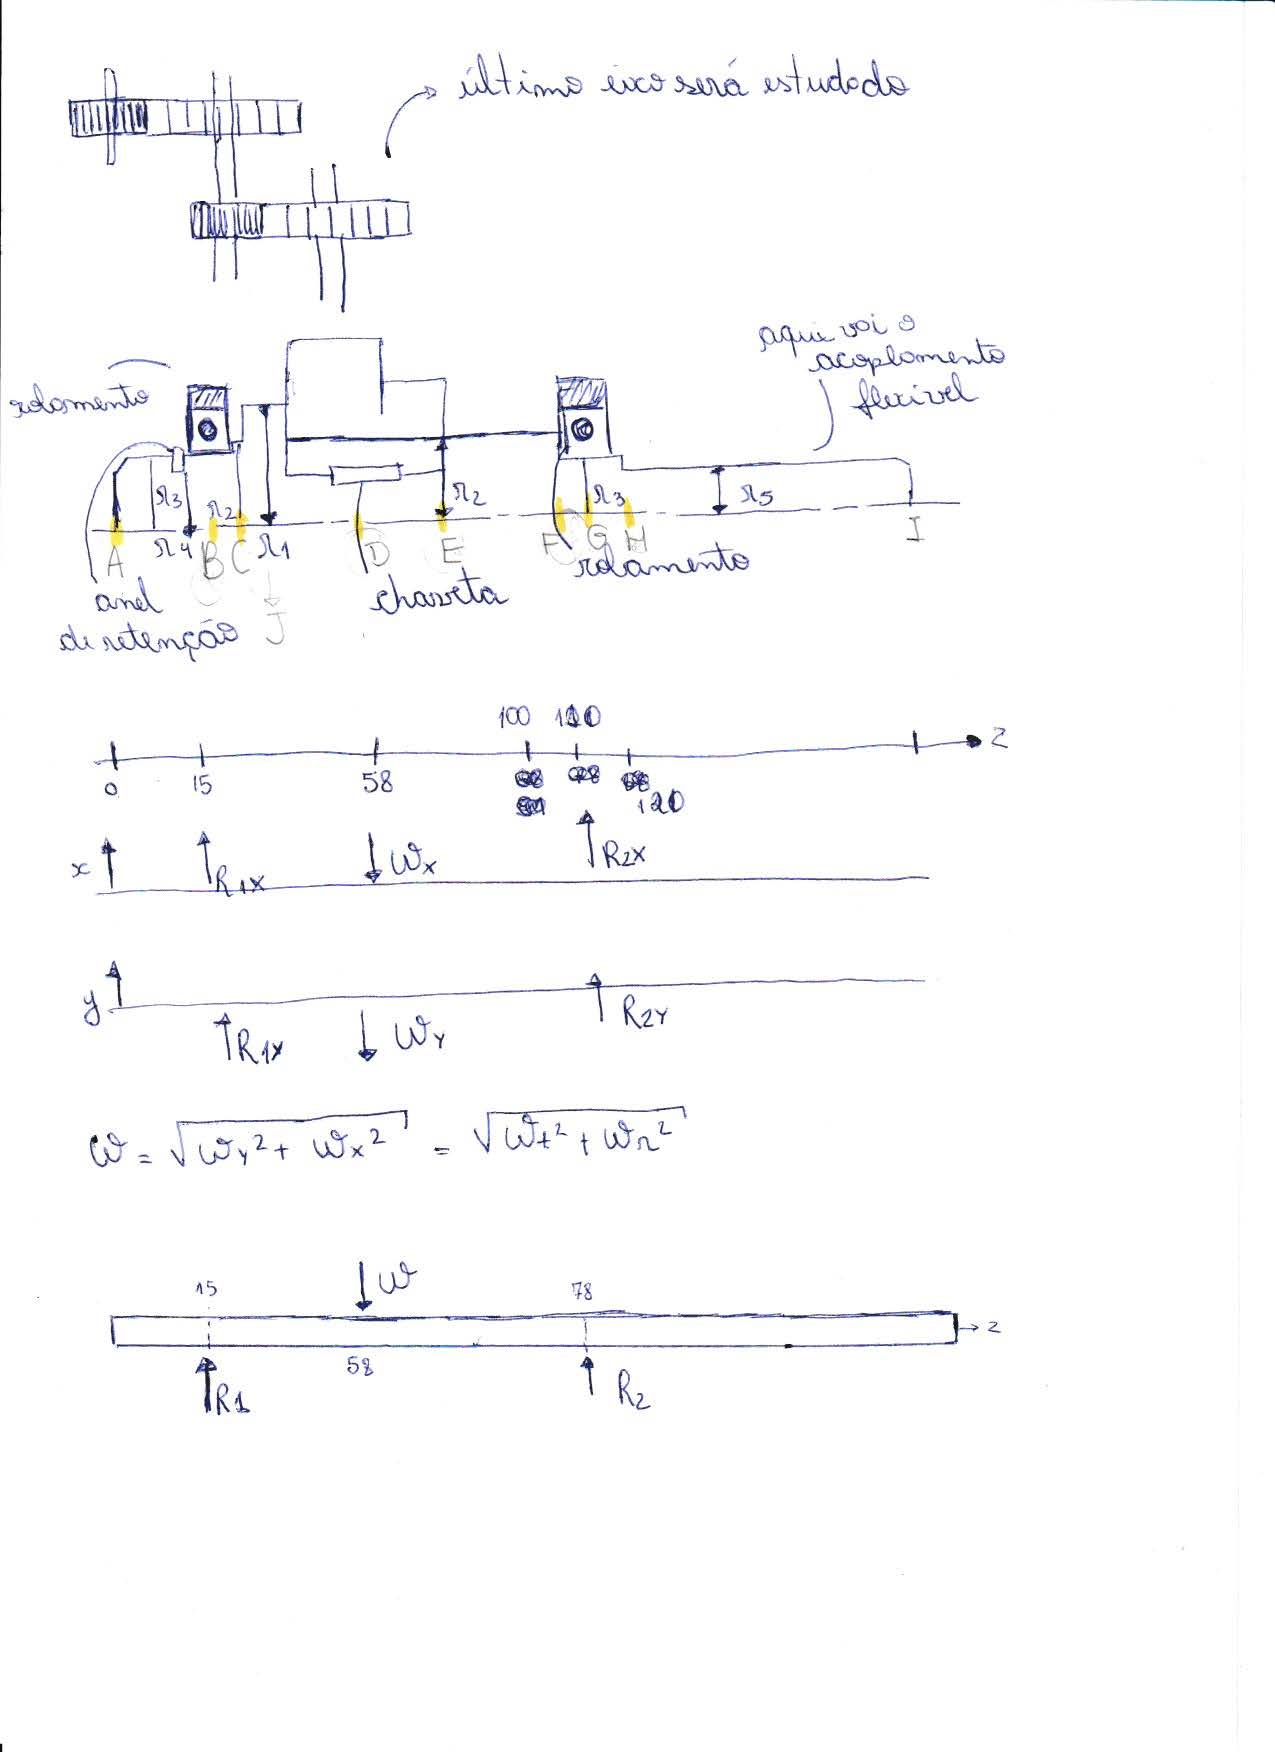 último eixo será estudado
aqui vai o
acoplamento
flexível
rolamento
r3 r2 r2 r3 r5
A r4 B C r1 D E F G H I
rolamento
anel
de retenção
J
chaveta
100 110
z
0 15 58
120
x R1X Wx R2X
y R1X WY R2Y
W = √WY² + Wx² = √Wt² + Wr²
15 W 78
z
58
R1 R2